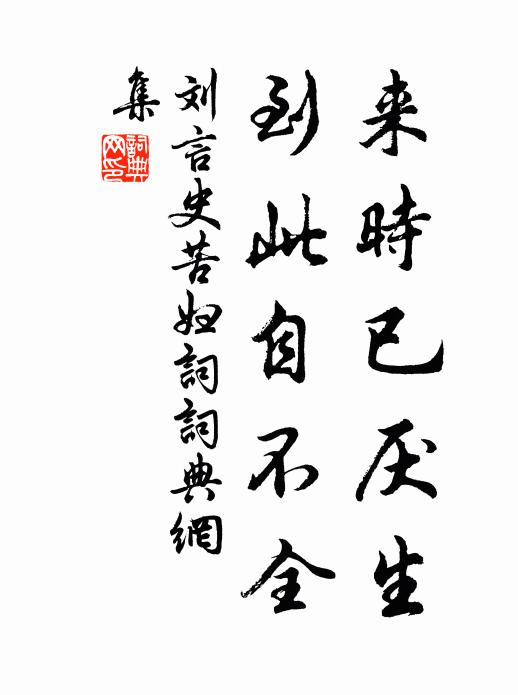 来時已厌生
到此自不全
刘言史苦妇詞詞典網
集
詞典网印